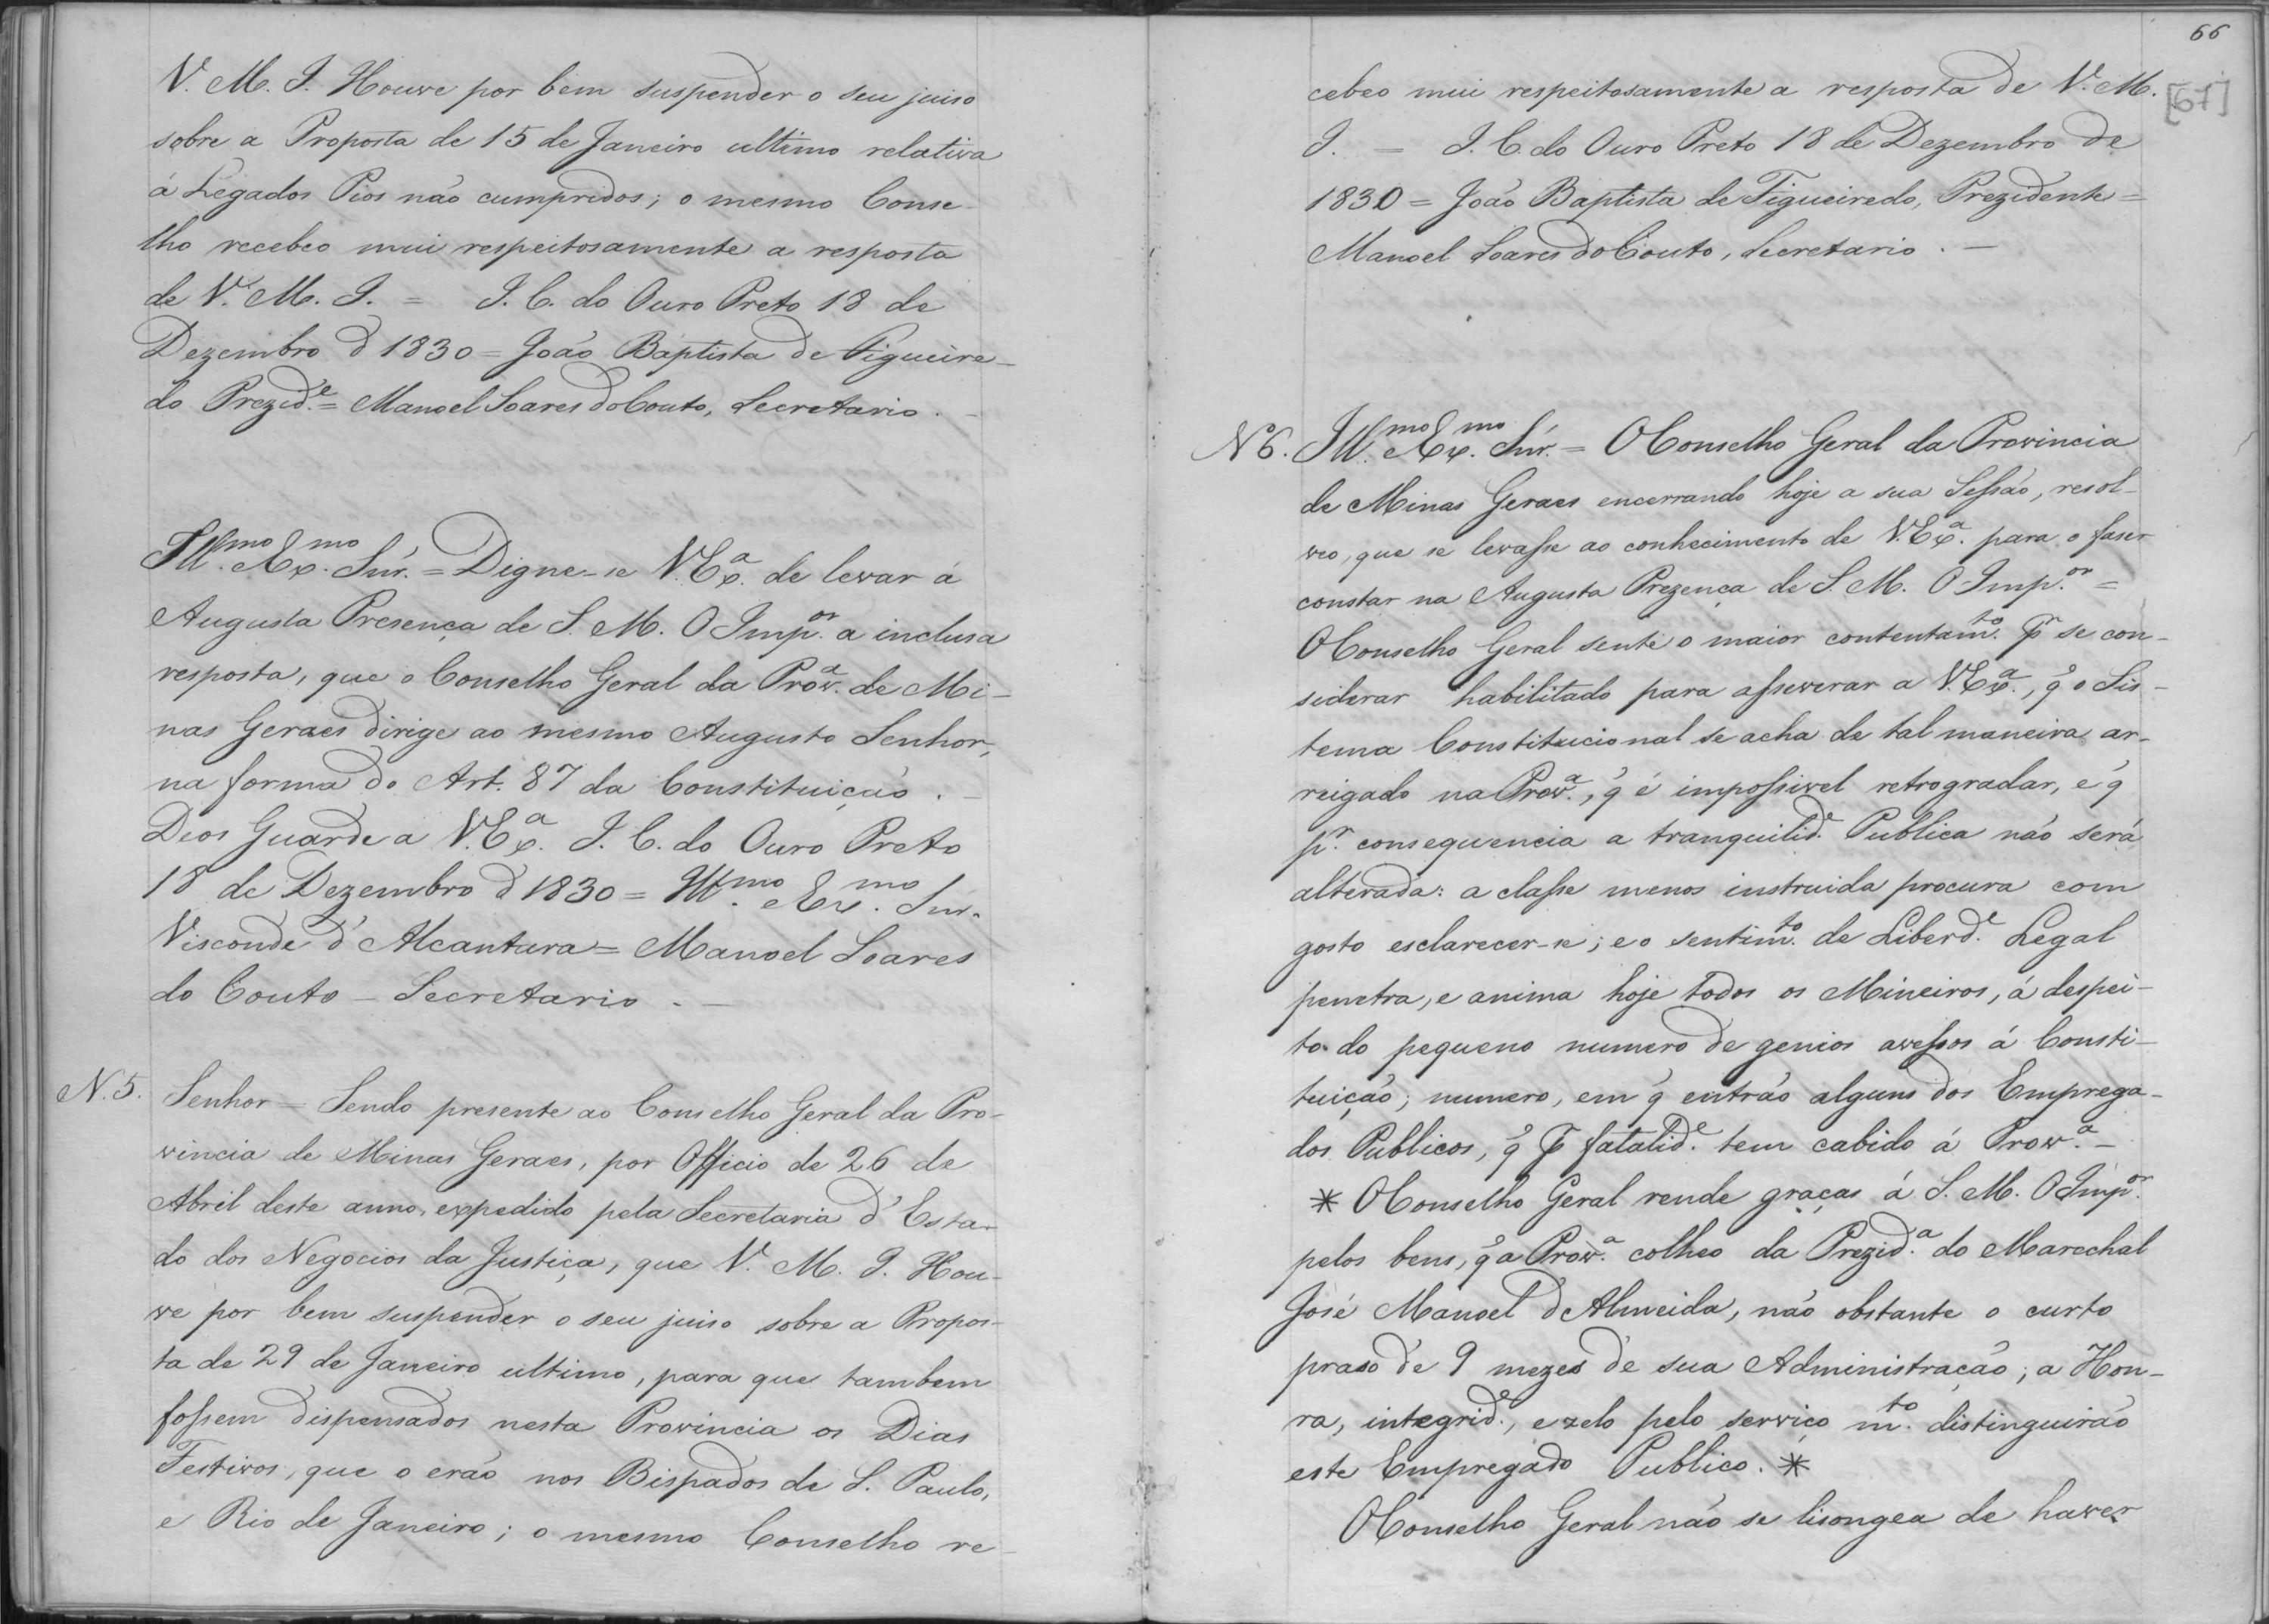 V. M. I. Houve por bem suspender o seu juiso
sobre a Proposta de 15 de Janeiro ultimo relativa
á Legados Pios não cumpridos; o mesmo Conse-
lho recebeo mui respeitosamente a resposta
de V. M. I. = I. C. do Ouro Preto 18 de
Dezembro d 1830 = João Baptista de Figueire-
do Prezid.e = Manoel Soares do Couto, Secretario. -
Ill.mo Ex.mo Snr. = Digne-se V. Ex.a de levar á
Augusta Presença de S. M. O Imp.or a inclusa
resposta, que o Conselho Geral da Prov.a de Mi-
nas Geraes dirige ao mesmo Augusto Senhor,
na forma do Art. 87 da Constituição. -
Deos Guarde a V. Ex.a I. C. do Ouro Preto
18 de Dezembro d 1830 = Ill.mo Ex.mo Snr.
Visconde d'Alcantara = Manoel Soares
do Couto - Secretario. -
N. 5. Senhor - Sendo presente ao Conselho Geral da Pro-
vincia de Minas Geraes, por Officio de 26 de
Abril deste anno, expedido pela Secretaria d'Esta-
do dos Negocios da Justiça, que V. M. I. Hou-
ve por bem suspender o seu juiso sobre a Propos-
ta de 29 de Janeiro ultimo, para que tambem
fossem dispensados nesta Provincia os Dias
Festivos, que o erão nos Bispados de S. Paulo,
e Rio de Janeiro; o mesmo Conselho re-
66
[67]
cebeo mui respeitosamente a resposta de V. M.
I. = I. C. do Ouro Preto 18 de Dezembro de
1830 = João Baptista de Figueiredo, Prezidente =
Manoel Soares do Couto, Secretario. -
Nº 6. Ill.mo Ex.mo Snr. = O Conselho Geral da Provincia
de Minas Geraes encerrando hoje a sua Sessão, resol-
veo, que se levasse ao conhecimento de V. Ex.a para o faser
constar na Augusta Prezença de S. M. O Imp.or =
O Conselho Geral sente o maior contentam.to pr se con-
siderar habilitado para asseverar a V. Ex.a, q̃ o Sis-
tema Constitucional se acha de tal maneira ar-
reigado na Prov.a, q̃ é impossivel retrogradar, e q̃
p.r consequencia a tranquilid.e Publica não será
alterada: a classe menos instruida procura com
gosto esclarecer-se; e o sentim.to de Liberd.e Legal
penetra, e anima hoje todos os Mineiros, á despei-
to do pequeno numero de genios avessos á Consti-
tuição; numero, em q̃ entrão alguns dos Emprega-
dos Publicos, q̃ p fatalid.e tem cabido á Prov.a -
* O Conselho Geral rende graças á S. M. O Imp.or
pelos bens, q̃ a Prov.a colheo da Prezid.a do Marechal
José Manoel d'Almeida, não obstante o curto
praso de 9 mezes de sua Administração; a Hon-
ra, integrid.e, e zelo pelo serviço m.to distinguirão
este Empregado Publico. *
O Conselho Geral não se lisongea de haver